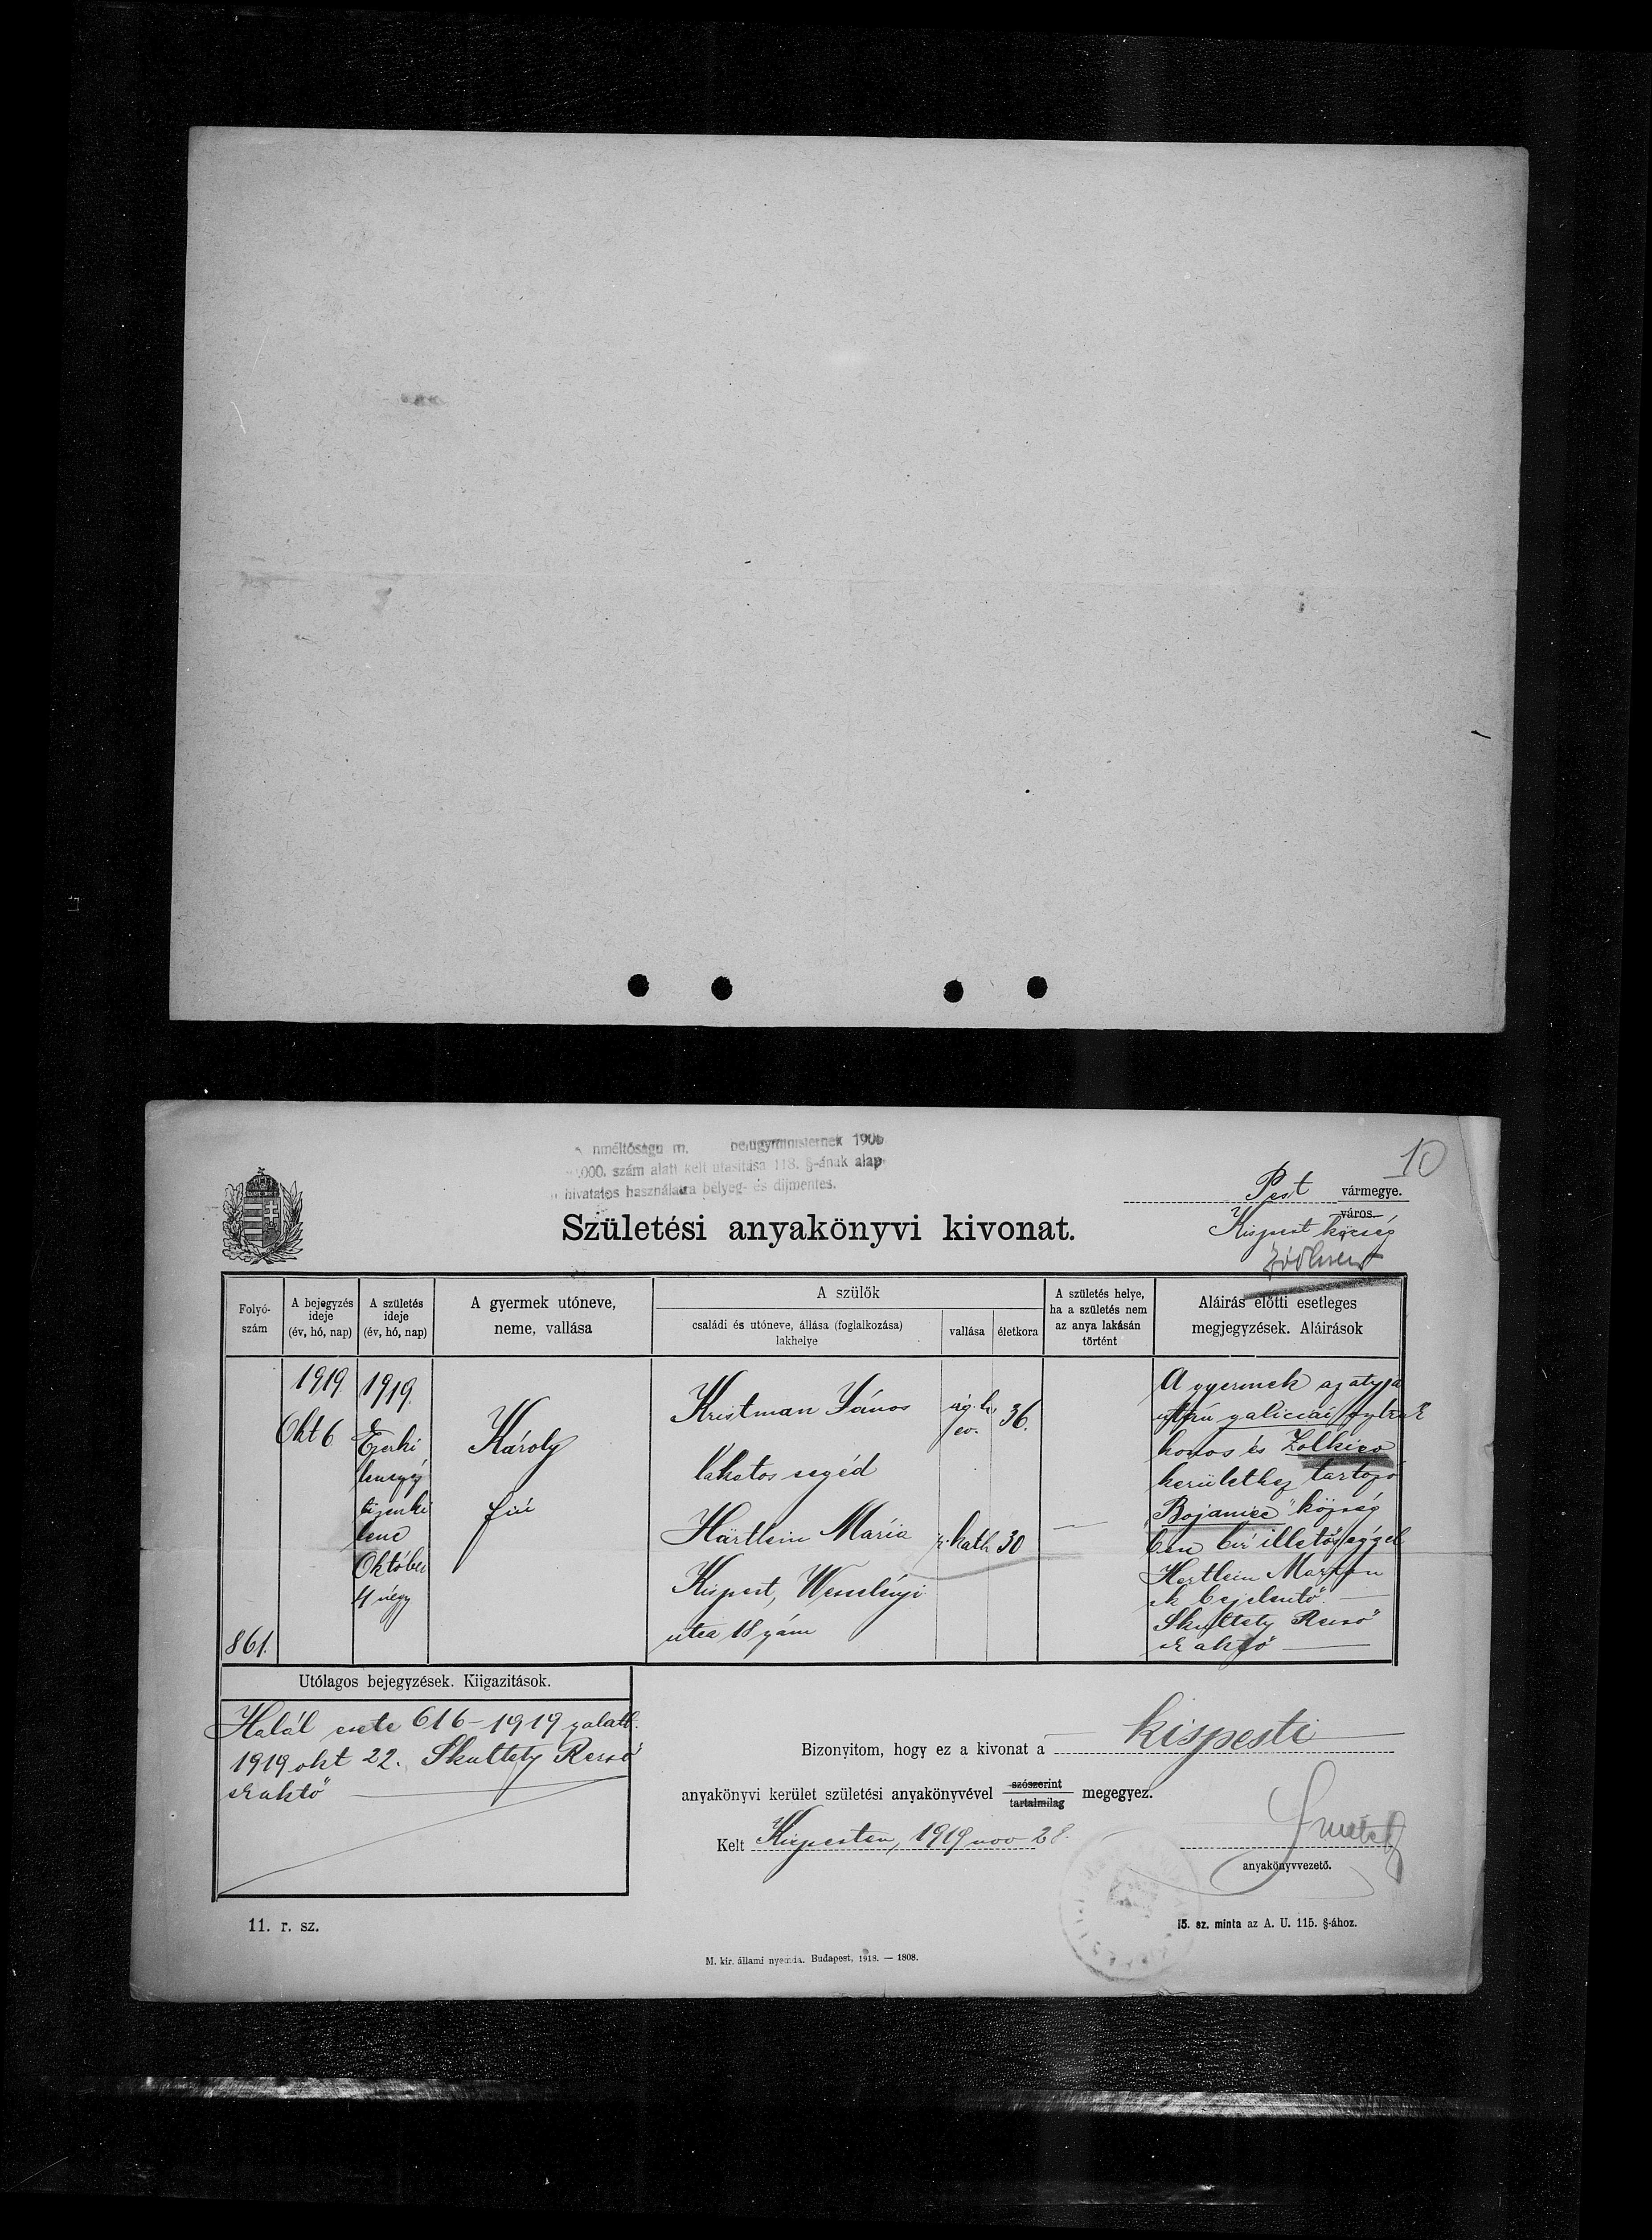 10
nméltóságu m. belügyministernek 190
000. szám alatt kelt utasítása 118. §-ának alap
hivatalos használatra bélyeg- és díjmentes.
Pest vármegye.
város
Kispest község
Születési anyakönyvi kivonat.
Folyó-
szám
A bejegyzés
ideje
(év, hó, nap)
A születés
ideje
(év, hó, nap)
A gyermek utóneve,
neme, vallása
A szülők
családi és utóneve, állása (foglalkozása)
lakhelye
vallása
életkora
A születés helye,
ha a születés nem
az anya lakásán
történt
Aláirás előtti esetleges
megjegyzések. Aláirások
861.
1919.
Okt 6
1919.
Ezerki
lencszáz
tizenki
lenc
Október
4 négy
Károly
fiú
Kristman János
lakatos segéd
Härtlein Mária
Kispest, Wesselényi
utca 18 szám
ág. h.
ev.
36.
r. kath
30
A gyermek az atyja
után galiciai
honos és Zolkiew
kerülethez tartozó
"Bojaniec" község
ben bir illetőséggel
Hertlein
sk bejelentő. —
Skultety Rezső
sk akvő —
Utólagos bejegyzések. Kiigazitások.
Halál esete 616-1919 sz alatt.
1919 okt 22. Skultety Rezső
sk akvő
Bizonyitom, hogy ez a kivonat a kispesti
anyakönyvi kerület születési anyakönyvével szószerint
tartalmilag megegyez.
Kelt Kispesten, 1919 nov 28.
anyakönyvvezető.
11. r. sz.
15. sz. minta az A. U. 115. §-ához.
M. kir. állami nyomda. Budapest, 1918. — 1808.